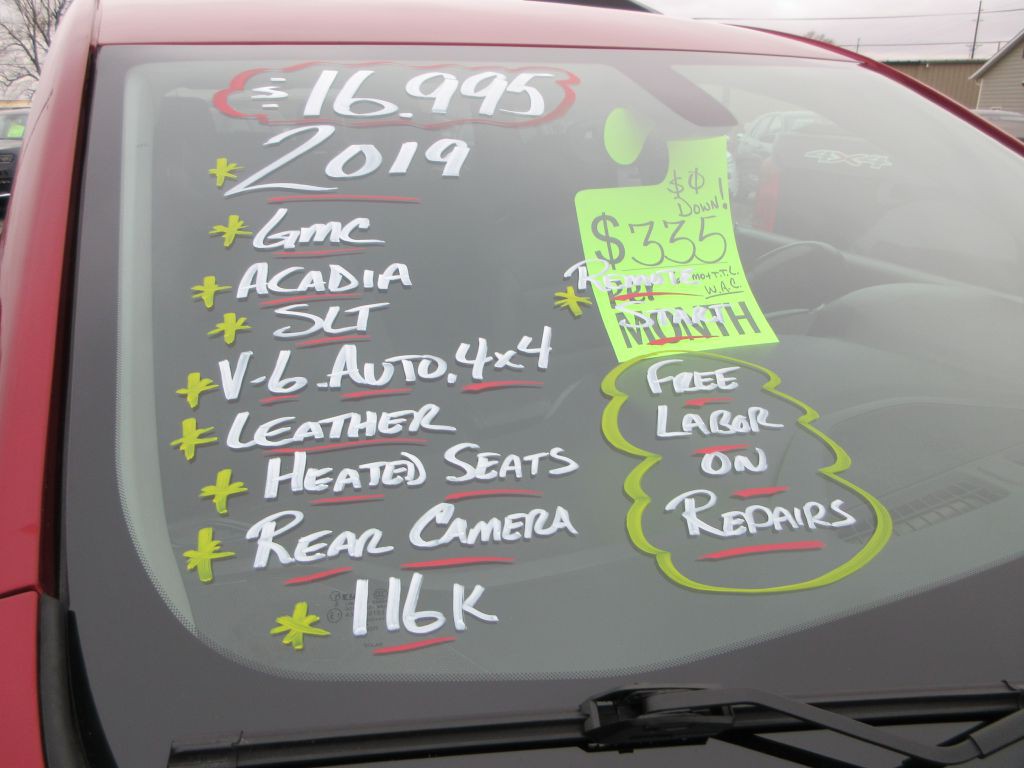 $16.995
*2019
*GMC
*ACADIA
*SLT
*V-6.AUTO.4x4
*LEATHER
*HEATED SEATS
*REAR CAMERA
*116K
$0
DOWN!
$335
MONTH
W.A.C.
*REMOTE
START
FREE
LABOR
ON
REPAIRS
4X4